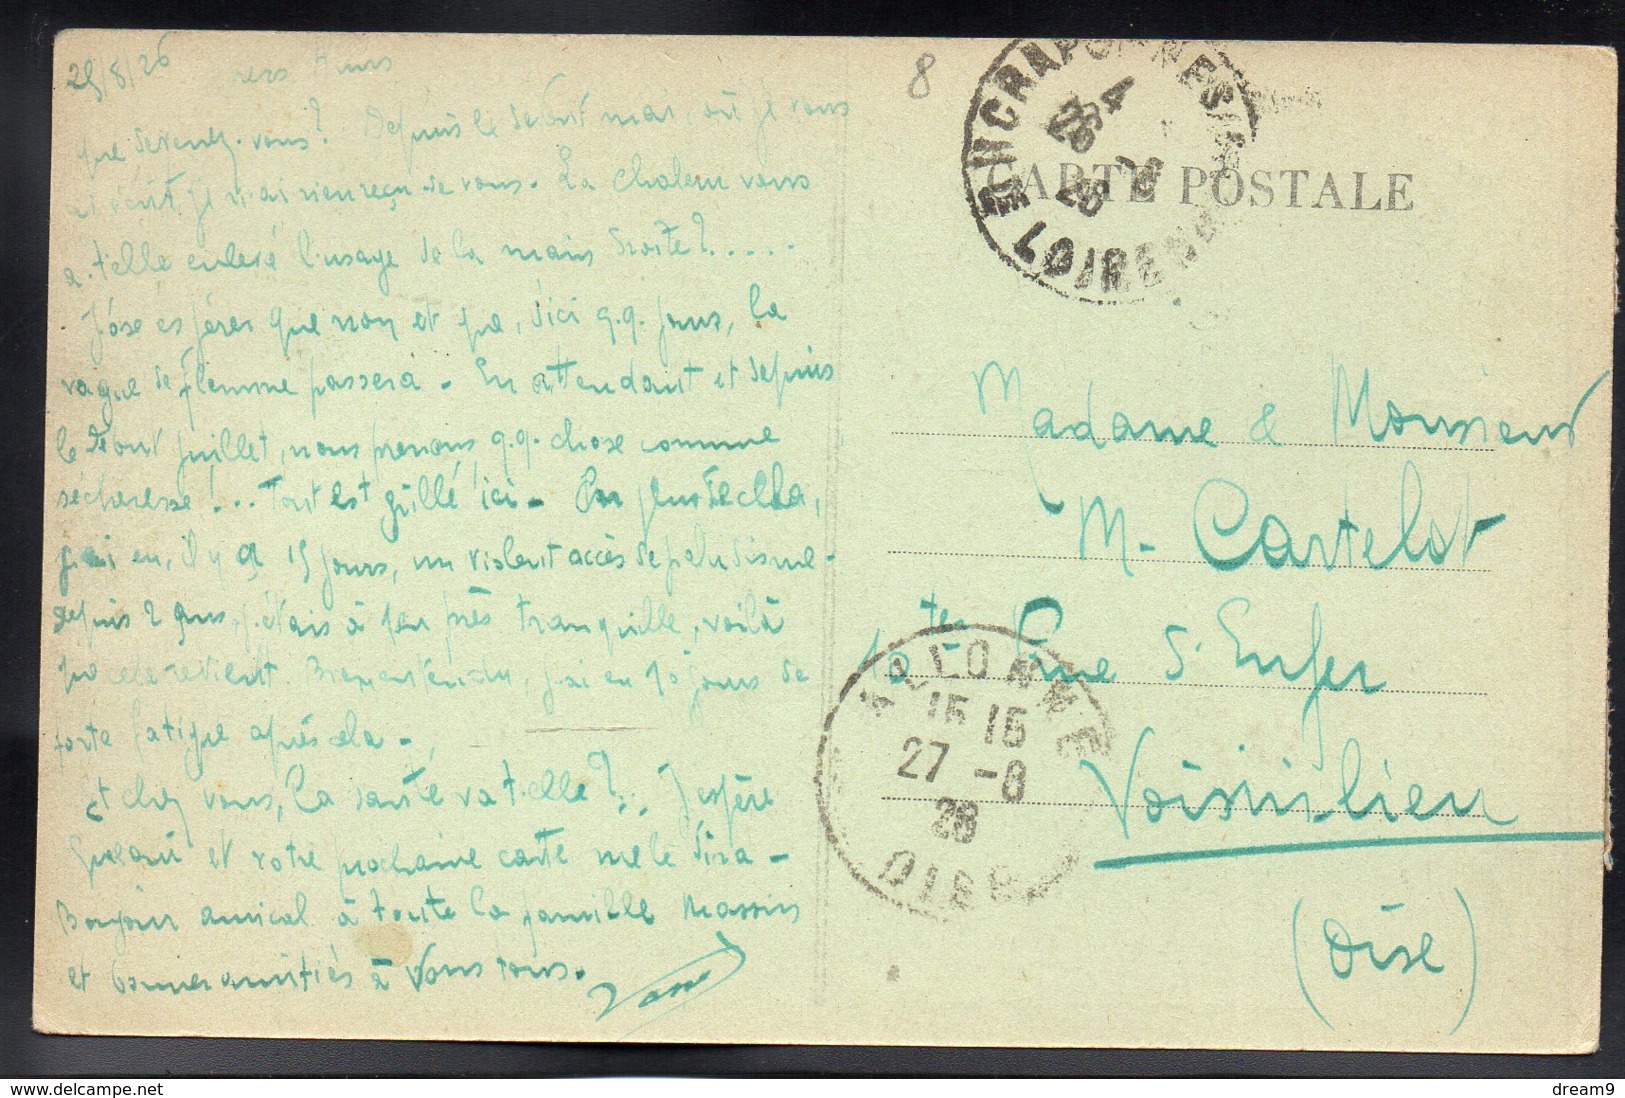 25/8/26 Chers Amis
que devenez-vous? Depuis le début mai, où je vous
ai écrit, je n'ai rien reçu de vous. La chaleur vous
a-t-elle enlevé l'usage de la main droite?.....
J'ose espérer que non et que, d'ici q.q. jours, la
vague de flemme passera - En attendant et depuis
le début juillet, nous prenons q.q. chose comme
sécheresse! ... Tout est grillé ici -
j'ai eu, il y a 15 jours, un violent accès de paludisme -
depuis 2 ans, j'étais à peu près tranquille, voilà
que cela revient. Bien entendu, j'ai eu 10 jours de
forte fatigue après cela -
Et chez vous, la santé va t-elle?... J'espère
que oui et votre prochaine carte me le dira -
Bonjour amical à toute la famille Massins
et bonnes amitiés à Vous tous.
8
4
26 - 8
26
CARTE POSTALE
Madame & Monsieur
M - Cartelot
Rue d'Enfer
Voisinlieu
(Oise)
ALLONNE
15 15
27 - 8
26
OISE
dream9